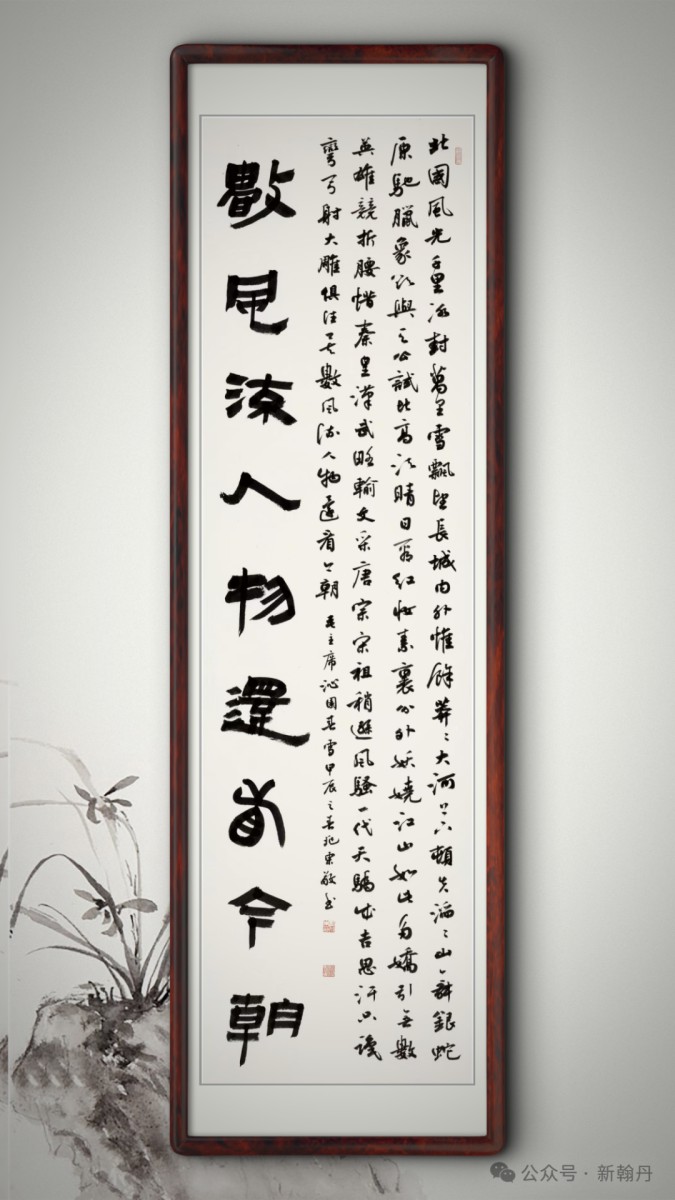 北國風光千里冰封萬里雪飄望長城內外惟餘莽〻大河上下頓失滔〻山舞銀蛇
原馳臘象欲與天公試比高須晴日看紅妝素裹分外妖嬈江山如此多嬌引無數
英雄競折腰惜秦皇漢武略輸文采唐宗宋祖稍遜風騷一代天驕成吉思汗只識
彎弓射大雕俱往矣數風流人物還看今朝 毛主席沁園春雪甲辰之春
數風流人物還看今朝
公众号·新翰丹